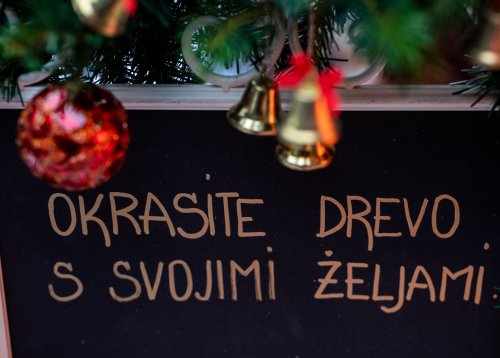 OKRASITE DREVO
S SVOJIMI ŽELJAMI